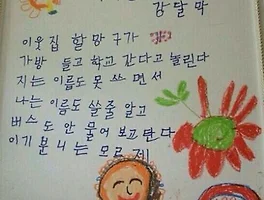 강달막
이웃집 할망구가
가방 들고 학교 간다고 놀린다
지는 이름도 못 쓰면서
나는 이름도 쓸줄 알고
버스도 안 물어보고 탄다
이기분 니는 모르제